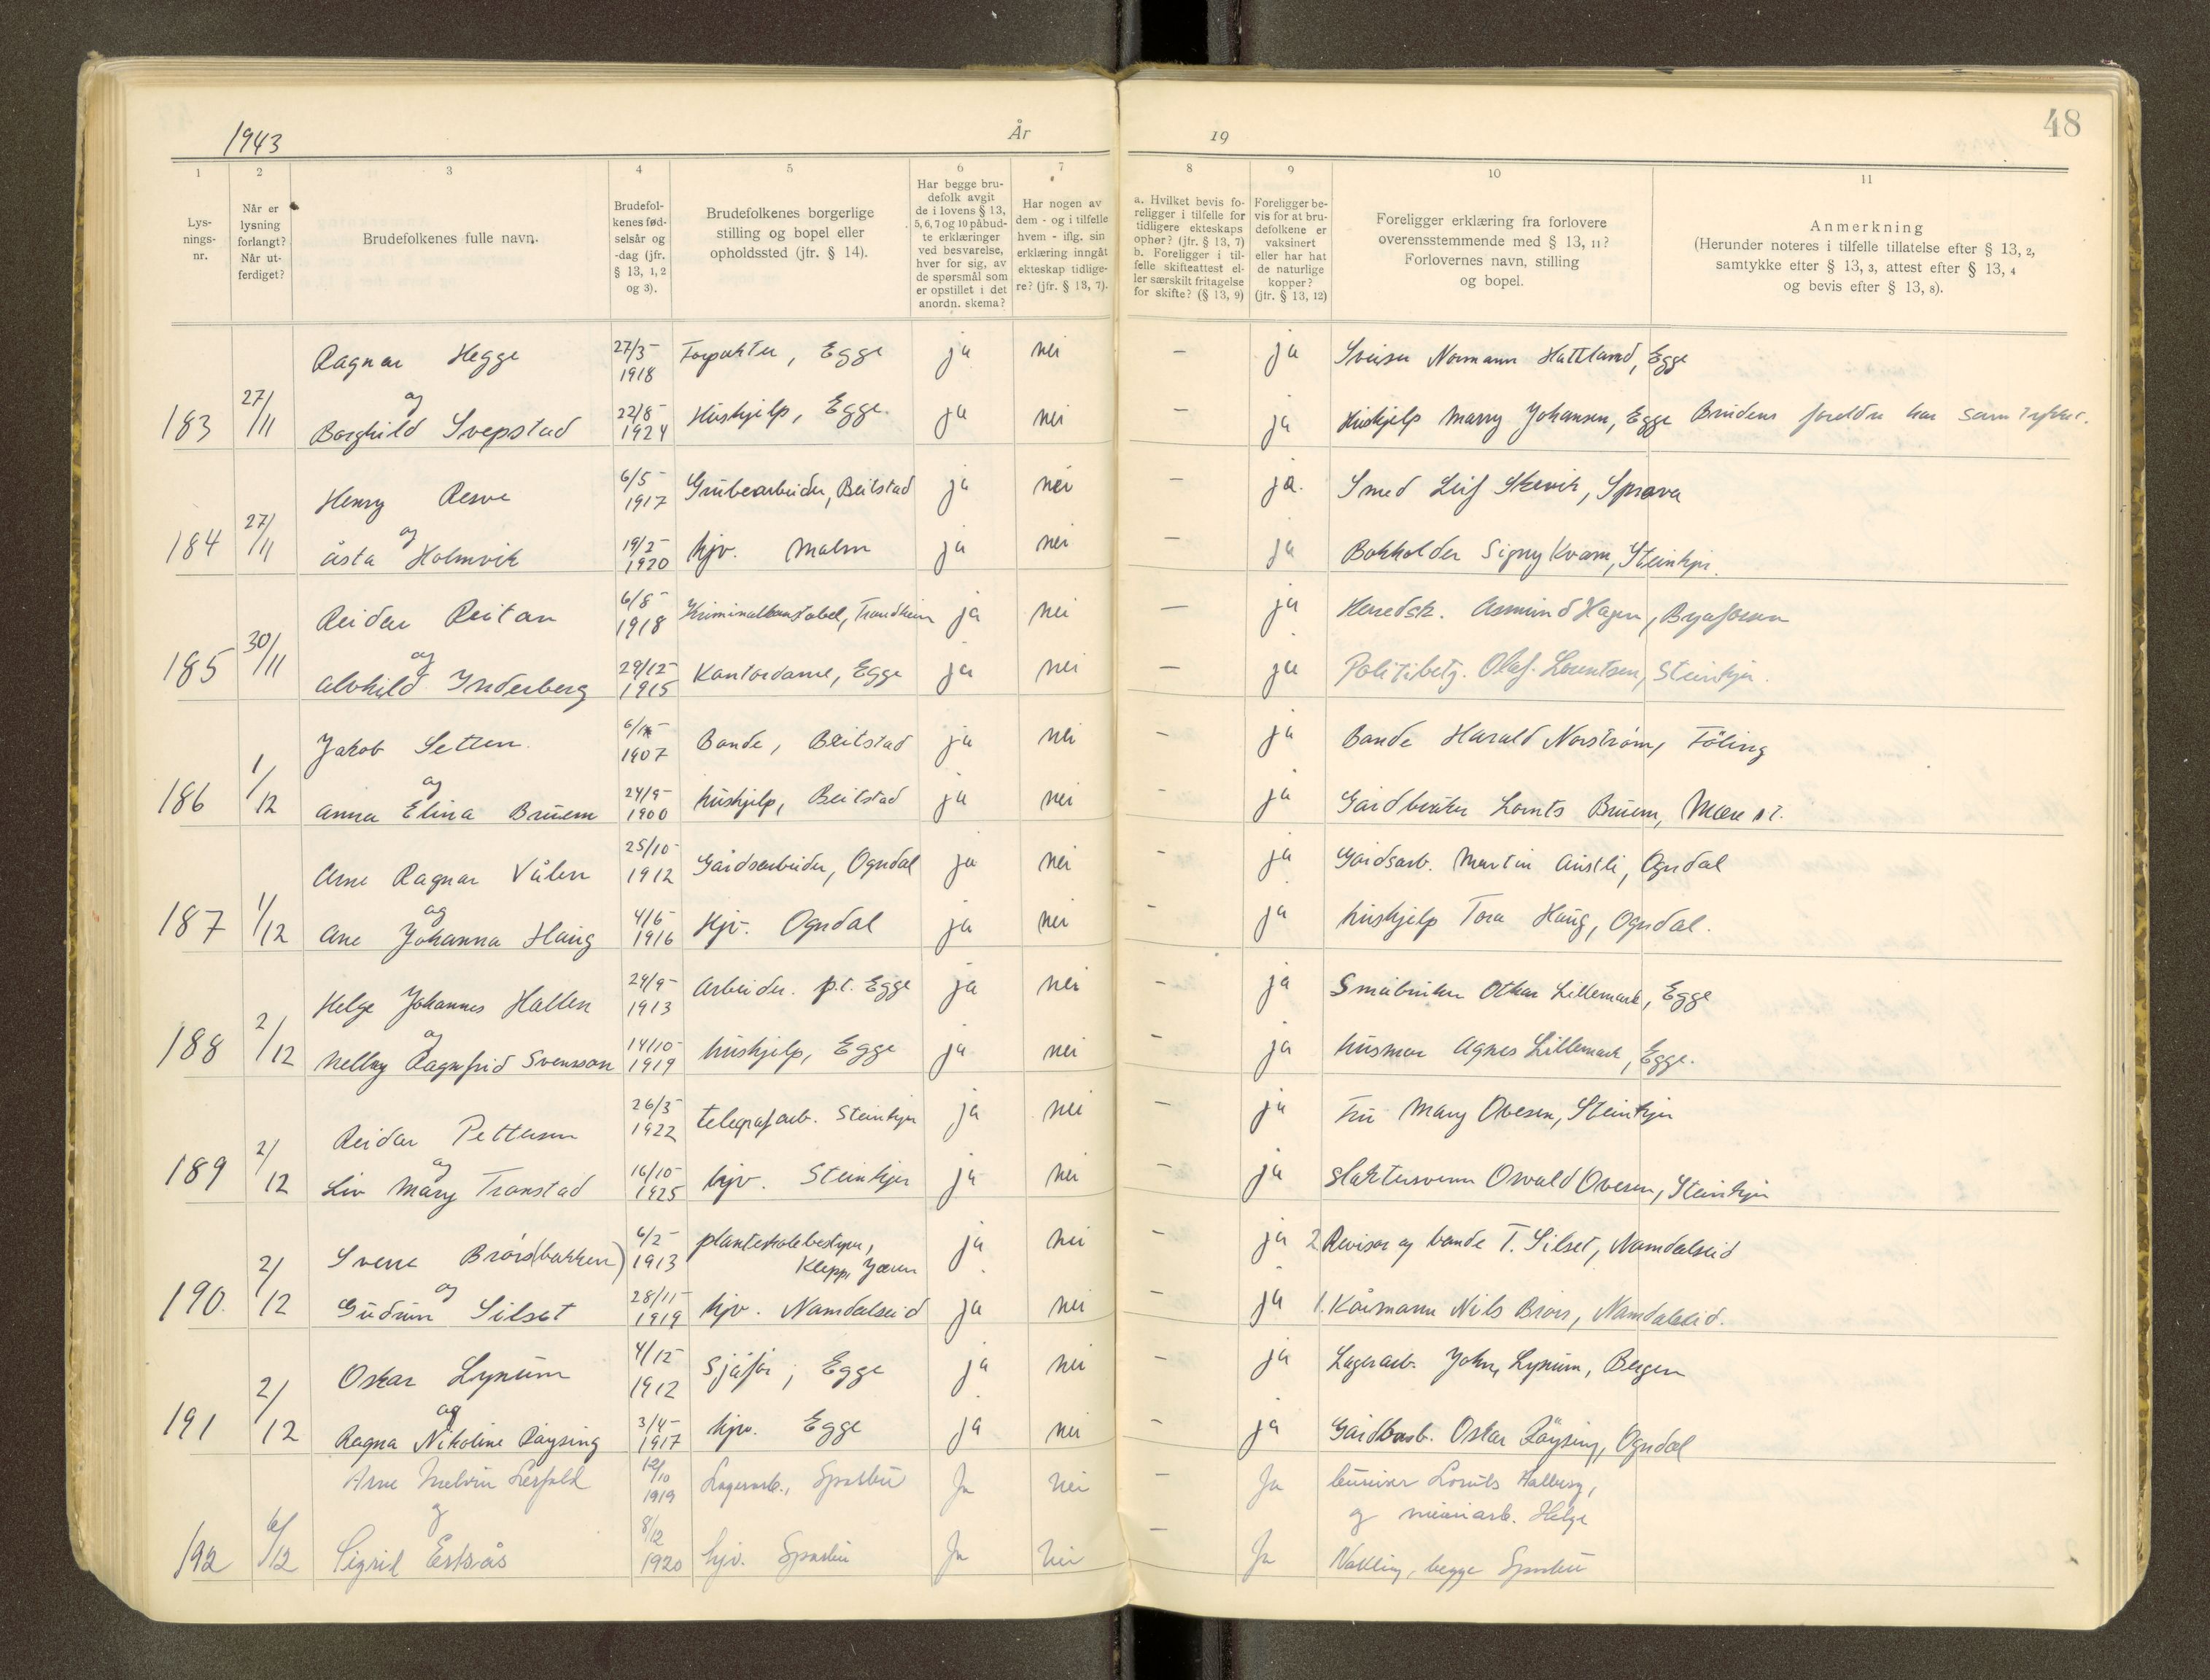 1943
År
19
48
1
2
3
4
5
6
7
8
9
10
11
Lys-
nings-
nr.
Når er
lysning
forlangt?
Når ut-
ferdiget?
Brudefolkenes fulle navn.
Brudefol-
kenes fød-
selsår og
-dag (jfr.
§ 13, 1, 2
og 3).
Brudefolkenes borgerlige
stilling og bopel eller
opholdssted (jfr. § 14).
Har begge bru-
defolk avgit
de i lovens § 13,
5, 6, 7 og 10 påbud-
te erklæringer
ved besvarelse,
hver for sig, av
de spørsmål som
er opstillet i det
anordn. skema?
Har nogen av
dem - og i tilfelle
hvem - iflg. sin
erklæring inngåt
ekteskap tidlige-
re? (jfr. § 13, 7).
a. Hvilket bevis fo-
religger i tilfelle for
tidligere ekteskaps
ophør? (jfr. § 13, 7)
b. Foreligger i til-
felle skifteattest el-
ler særskilt fritagelse
for skifte? (§ 13, 9)
Foreligger be-
vis for at bru-
defolkene er
vaksinert
eller har hat
de naturlige
kopper?
(jfr. § 13, 12)
Foreligger erklæring fra forlovere
overensstemmende med § 13, 11?
Forlovernes navn, stilling
og bopel.
Anmerkning
(Herunder noteres i tilfelle tillatelse efter § 13, 2,
samtykke efter § 13, 3, attest efter § 13, 4
og bevis efter § 13, 8).
Ragnar Hegge 27/3- 1918 Forpakter, Egge ja nei — ja Sveiser Normann Hattland, Egge
og
183 27/11 Borghild Svepstad 22/8- 1924 Hushjelp, Egge. ja nei — ja Hushjelp Marry Johansen, Egge Brudens foreldre har samtykket.
Henry Resve 6/5- 1917 Grubearbeider, Beitstad ja nei — ja. Smed Leif Skevik, Sprova
og
184 27/11 Åsta Holmvik 19/2- 1920 hjv. Malm ja nei — ja Bokholder Signy Kvam, Steinkjer.
Reidar Reitan 6/8- 1918 Kriminalkonstabel, Trondheim ja nei — ja Herredsk. Asmund Hagen, Byafossen
og
185 30/11 Alvhild Inderberg 29/12- 1915 Kontordame, Egge ja nei — ja Politibetj. Olaf Lorentsen, Steinkjer.
Jakob Setten. 1907 Bonde, Beitstad ja nei — ja Bonde Harald Norstrøm, Føling
og
186 1/12 Anna Elina Bruem 24/9- 1900 hushjelp, Beitstad ja nei — ja Gårdbruker Lornts Bruem, Mære st.
Arne Ragnar Vålen 25/10- 1912 Gårdsarbeider, Ogndal ja nei — ja Gårdsarb. Martin Austli, Ogndal
og
187 1/12 Ane Johanna Haug 4/6- 1916 Hjv. Ogndal ja nei — ja hushjelp Tora Haug, Ogndal.
Helge Johannes Hallen 24/9- 1913 Arbeider. p.t. Egge ja nei — ja Småbruker Othar Lillemark, Egge
og
188 2/12 Nelly Ragnfrid Svensson 14/10- 1919 hushjelp, Egge ja nei — ja husmor Agnes Lillemark, Egge.
Reidar Pettersen 26/3- 1922 telegrafarb. Steinkjer ja nei — ja Fru Mary Ovesen, Steinkjer
og
189 2/12 Liv Mary Transtad 16/10- 1925 hjv. Steinkjer ja nei — ja slaktersvenn Osvald Ovesen, Steinkjer
Sverre Brørs(bakken) 6/2- 1913 planteskolebestyrer, Klepp, Jæren ja nei — ja 2 Revisor og bonde T. Silset, Namdalseid
og
190. 2/12 Gudrun Silset 28/11- 1919 hjv. Namdalseid ja nei — ja 1. Kårmann Nils Brørs, Namdalseid.
Oskar Lynum 4/12- 1912 Sjåfør, Egge ja nei — ja Lagerarb. John Lynum, Bergen
og
191 2/12 Ragna Nikoline Røysing 3/4- 1917 hjv. Egge ja nei — ja Gårdbarb. Oskar Røysing, Ogndal
Arne Melvin Lerfald 12/10 1919 Lagerarb., Sparbu Ja nei — Ja Lornts Halberg,
og
og murarb. Helge
192 6/12 Sigrid Eksås 8/12 1920 hjv. Sparbu Ja nei — Ja Nøkling, begge Sparbu